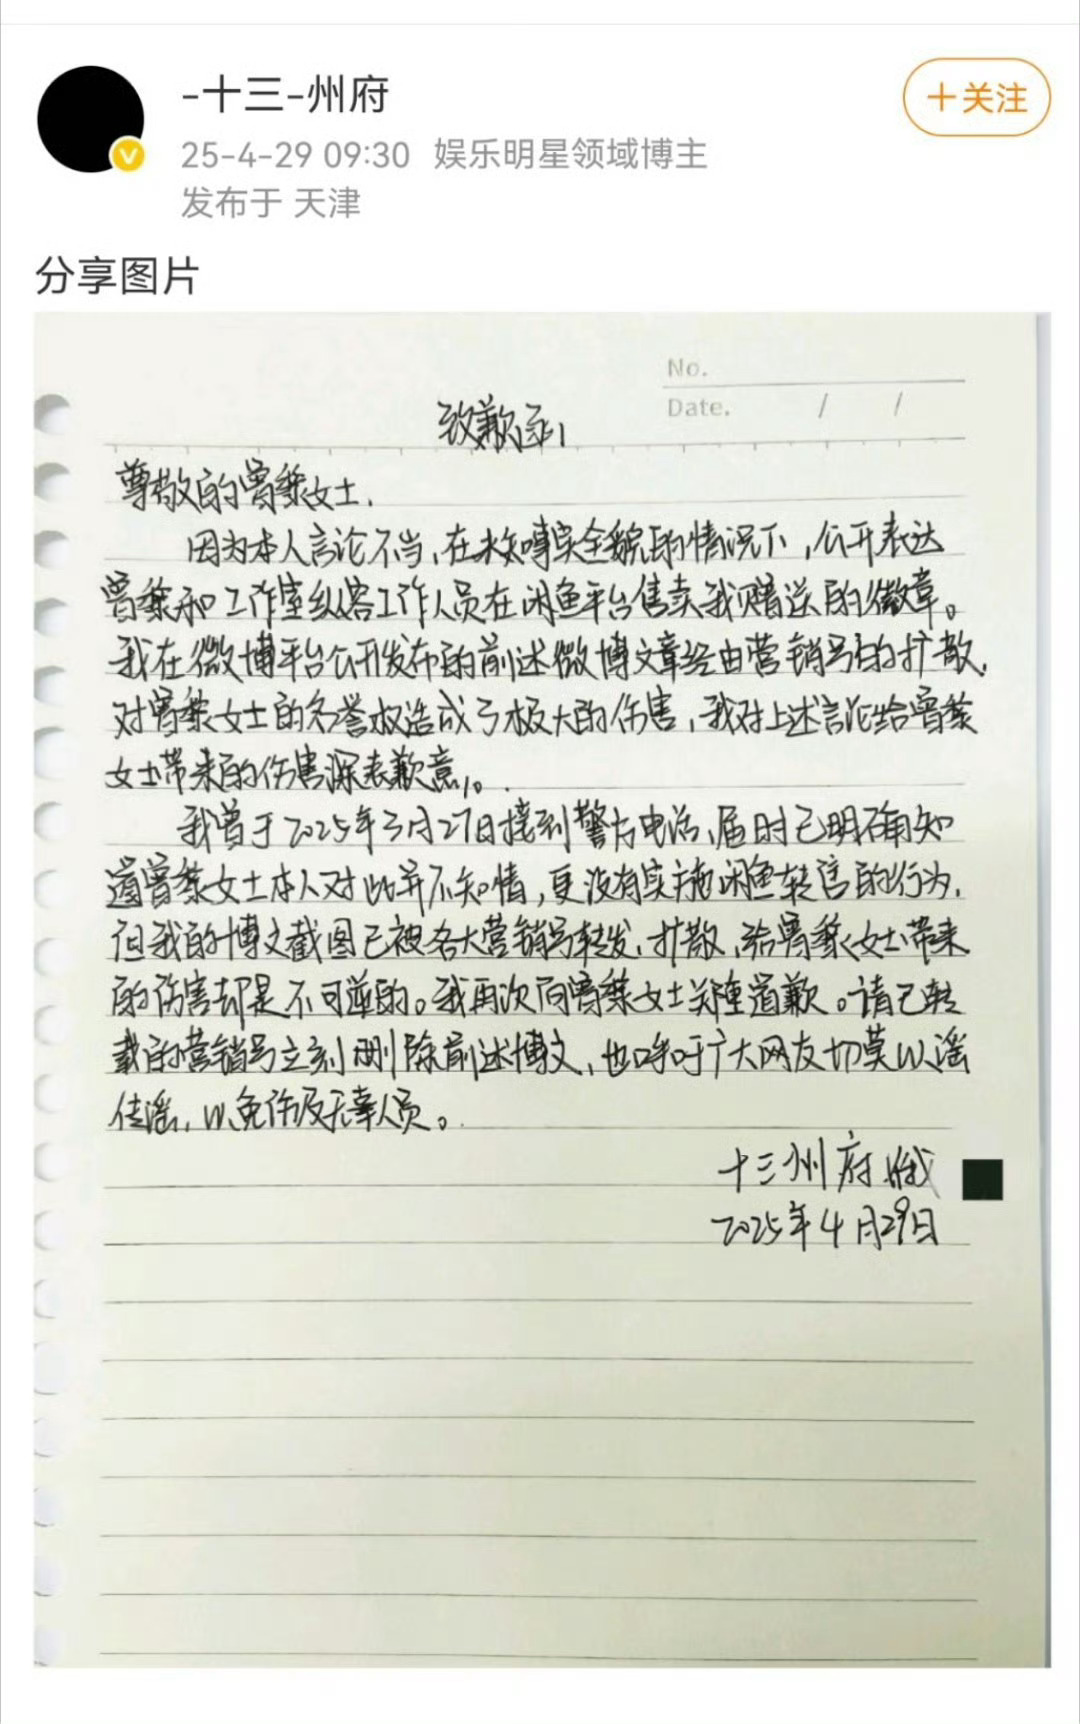 -十三-州府
+关注
25-4-29 09:30 娱乐明星领域博主
发布于 天津
分享图片
No.
Date. / /
致歉函
尊敬的曾黎女士,
因为本人言论不当,在未知事实全貌的情况下,公开表达
曾黎和工作室纵容工作人员在闲鱼平台售卖我赠送的徽章。
我在微博平台公开发布的前述微博文章经由营销号的扩散,
对曾黎女士的名誉权造成了极大的伤害,我对上述言论给曾黎
女士带来的伤害深表歉意。
我曾于2025年3月27日接到警方电话,届时已明确知
道曾黎女士本人对此并不知情,更没有实施闲鱼转售的行为,
但我的博文截图已被各大营销号转发,扩散,给曾黎女士带来
的伤害却是不可逆的。我再次向曾黎女士郑重道歉。请已转
载的营销号立刻删除前述博文,也呼吁广大网友切莫以谣
传谣,以免伤及无辜人员。
十三州府
2025年4月29日